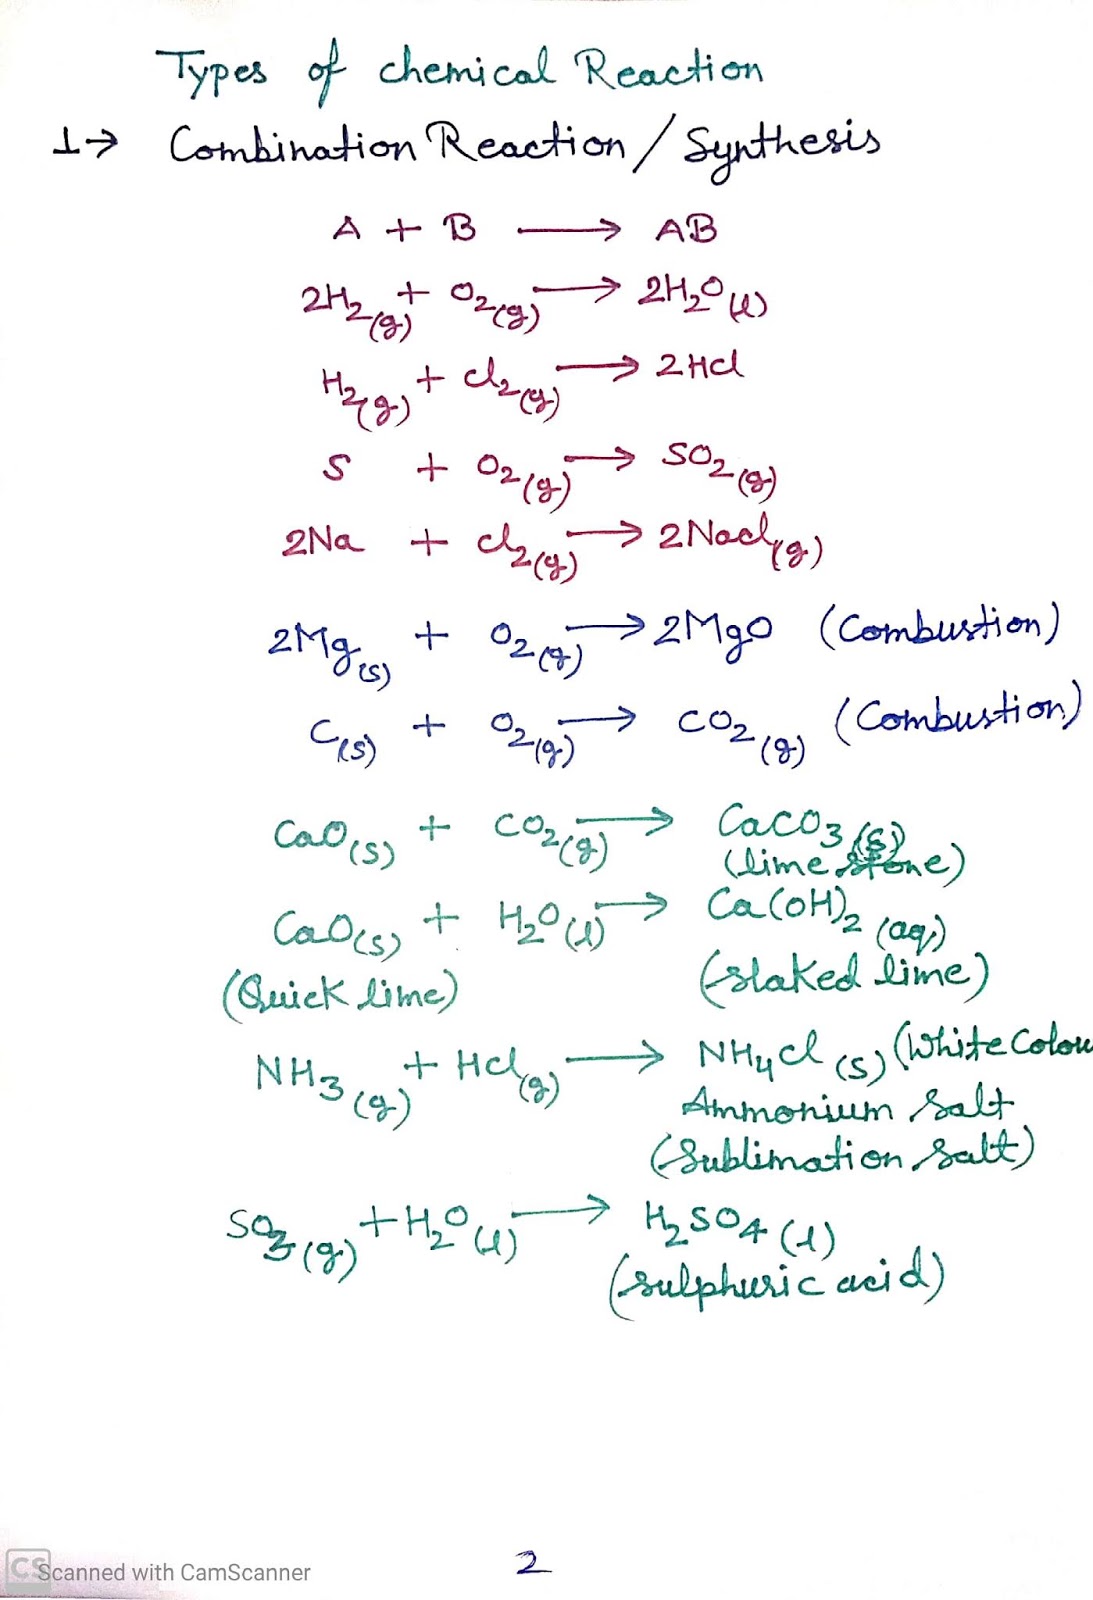 Types of chemical Reaction
1→ Combination Reaction / Synthesis
A + B ⟶ AB
2H₂(g) + O₂(g) ⟶ 2H₂O(l)
H₂(g) + Cl₂(g) ⟶ 2HCl
S + O₂(g) ⟶ SO₂(g)
2Na + Cl₂(g) ⟶ 2NaCl(g)
2Mg(s) + O₂(g) ⟶ 2MgO (Combustion)
C(s) + O₂(g) ⟶ CO₂(g) (Combustion)
CaO(s) + CO₂(g) ⟶ CaCO₃(s)
(lime stone)
CaO(s) + H₂O(l) ⟶ Ca(OH)₂(aq)
(Quick lime) (slaked lime)
NH₃(g) + HCl(g) ⟶ NH₄Cl(s) (White Colou
Ammonium Salt
(Sublimation Salt)
SO₃(g) + H₂O(l) ⟶ H₂SO₄(l)
(sulphuric acid)
2
CS Scanned with CamScanner